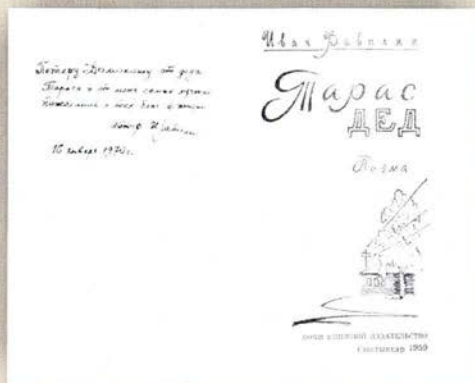 от деда
Тараса и от меня самые лучшие
пожелания и всех благ в жизни
автор
16 января 1970 г.
Иван Вавилин
Тарас
ДЕД
Поэма
КОМИ КНИЖНОЙ ИЗДАТЕЛЬСТВО
Сыктывкар 1959